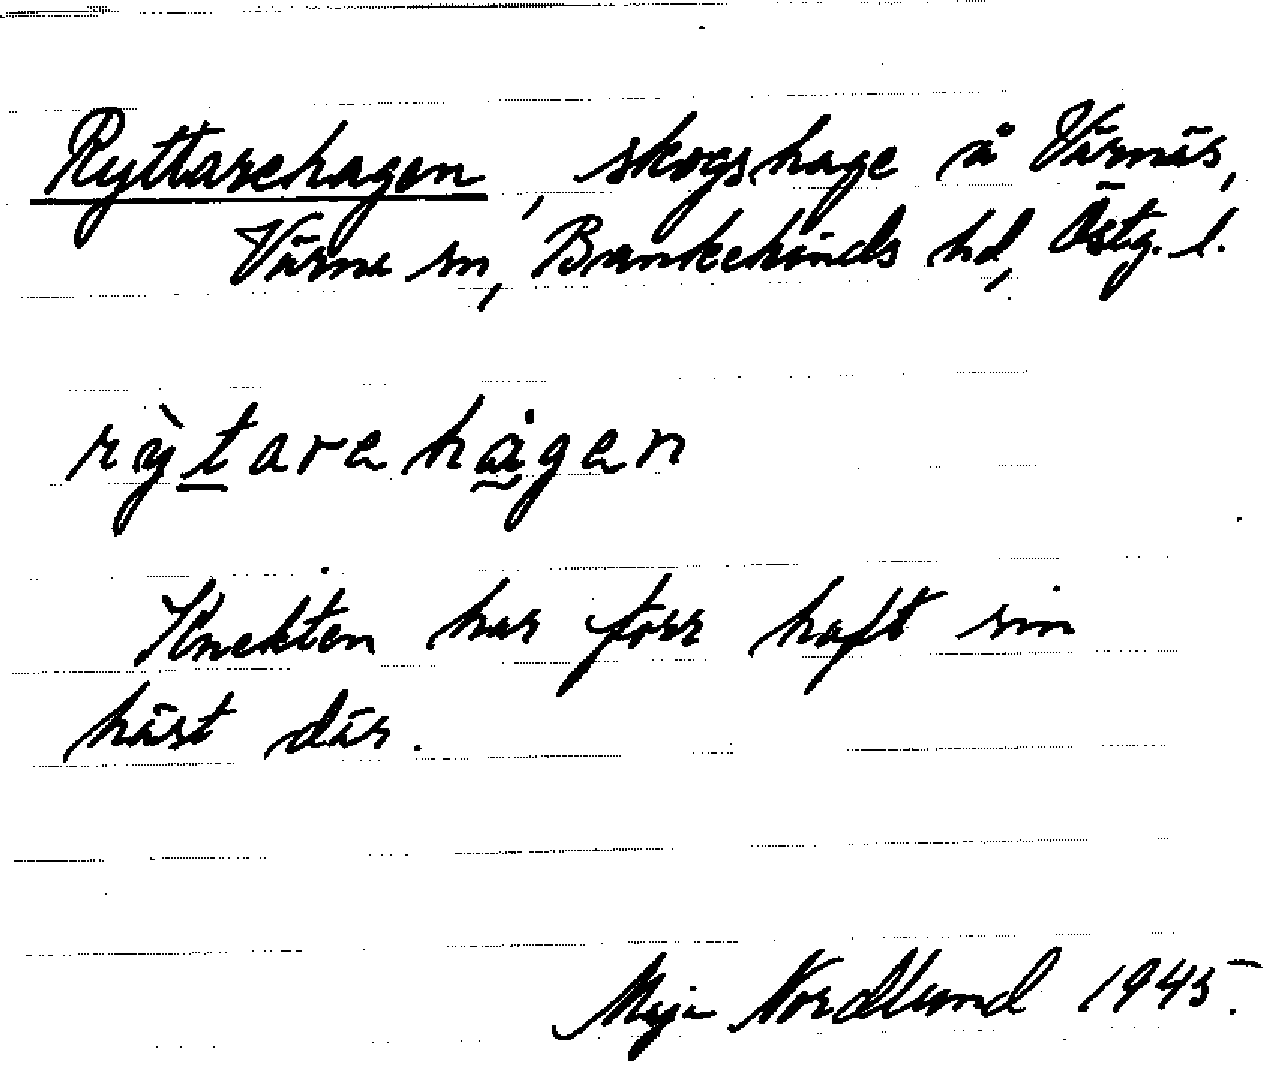 Ryttarehagen, skogshage å Värnäs,
Värna sn, Bankekinds hd, Östg. l.
rỳtarehågen
Knekten har förr haft sin
häst där.
Maja Nordlund 1945.